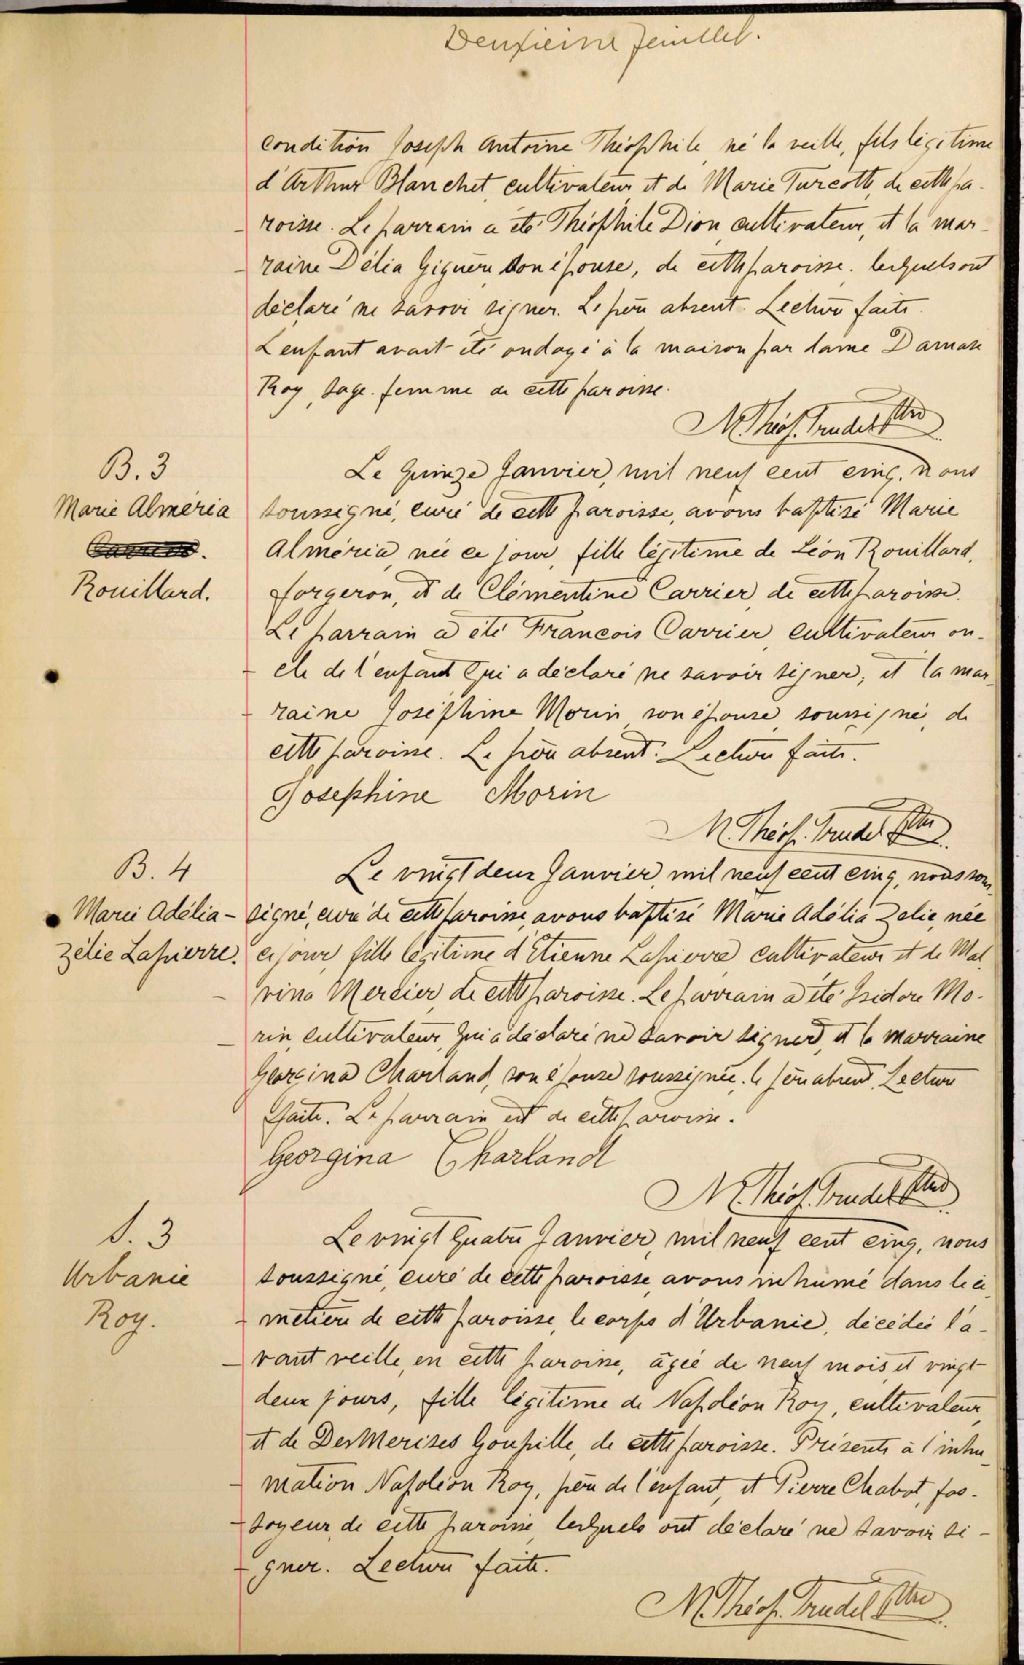 Deuxième feuillet.
condition Joseph Antoine Théophile, né la veille, fils légitime
d'Arthur Blanchet, cultivateur et de Marie Turcotte, de cette pa-
roisse. Le parrain a été Théophile Dion, cultivateur, et la mar-
raine Délia Giguère son épouse, de cette paroisse. lesquels ont
déclaré ne savoir signer. Le père absent. Lecture faite.
L'enfant avait été ondoyé à la maison par dame Damase
Roy, sage-femme de cette paroisse.
M. Théop. Trudel Ptre
B. 3
Marie Alméria
Rouillard.
Le quinze Janvier, mil neuf cent cinq, nous
soussigné, curé de cette paroisse, avons baptisé Marie
Alméria, née ce jour, fille légitime de Léon Rouillard,
forgeron, et de Clémentine Carrier, de cette paroisse.
Le parrain a été François Carrier, cultivateur on-
cle de l'enfant qui a déclaré ne savoir signer; et la mar-
raine Joséphine Morin, son épouse, soussigné, de
cette paroisse. Le père absent. Lecture faite.
Josephine Morin
M. Théop. Trudel Ptre
B. 4
Marie Adélia-
Zélie Lapierre.
Le vingt deux Janvier, mil neuf cent cinq, nous sous-
signé, curé de cette paroisse, avons baptisé Marie Adélia Zelie, née
ce jour, fille légitime d'Etienne Lapierre cultivateur et de Mal-
vina Mercier, de cette paroisse. Le parrain a été Isidore Mo-
rin, cultivateur, qui a déclaré ne savoir signer, et la marraine
Georgina Charland, son épouse soussignée. le père absent. Lecture
faite. Le parrain est de cette paroisse.
Georgina Charland
M. Théop. Trudel Ptre
S. 3
Urbanie
Roy.
Le vingt quatre Janvier, mil neuf cent cinq, nous
soussigné, curé de cette paroisse, avons inhumé dans le ci-
metière de cette paroisse, le corps d'Urbanie, décédée l'a-
vant veille, en cette paroisse, âgée de neuf mois et vingt
deux jours, fille légitime de Napoléon Roy, cultivateur,
et de DesMerises Goupille, de cette paroisse. Présents à l'inhu-
mation Napoléon Roy, père de l'enfant, et Pierre Chabot, fos-
soyeur, de cette paroisse, lesquels ont déclaré ne savoir si-
gner. Lecture faite.
M. Théop. Trudel Ptre